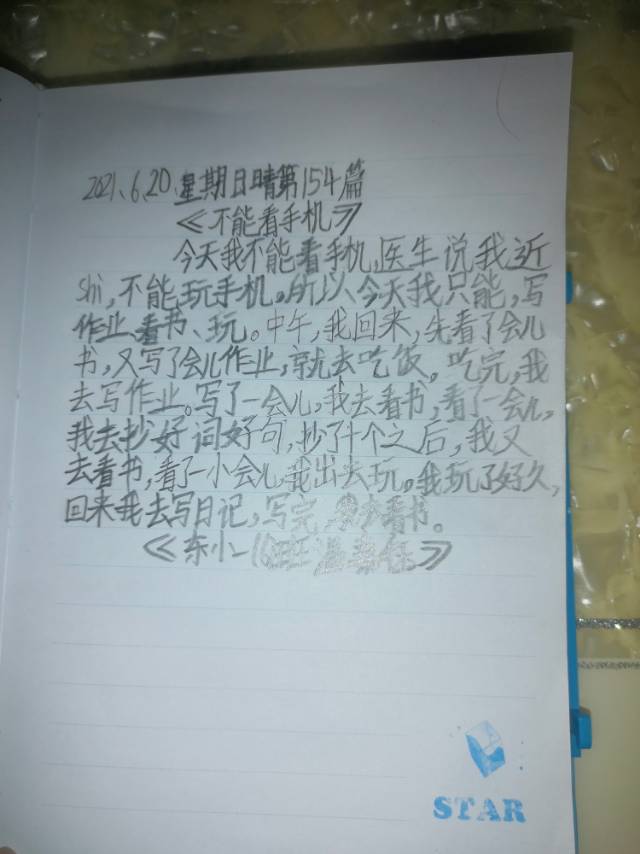 2021、6、20、星期日晴第154篇
《不能看手机》
今天我不能看手机,医生说我近
shi,不能玩手机。所以、今天我只能,写
作业、看书、玩。中午,我回来,先看了会儿
书,又写了会儿作业,就去吃饭。吃完,我
去写作业。写了一会儿,我去看书,看了一会儿,
我去抄好词好句,抄了十个之后,我又
去看书,看了一小会儿,我出去玩。我玩了好久,
回来我去写日记,写完,去看书。
《东小一16班温
STAR